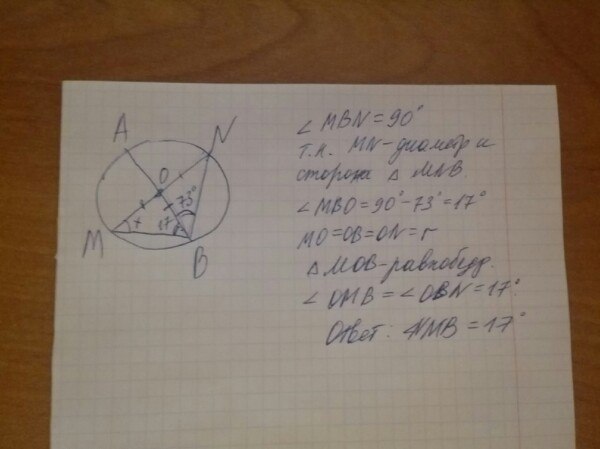 A N
O
73°
x 17
M B
∠ MBN = 90°
т.к. MN - диаметр и
сторона △ MNB.
∠ MBO = 90° - 73° = 17°
MO = OB = ON = r
△ MOB - равнобедр.
∠ OMB = ∠ OBN = 17°.
Ответ: ∠NMB = 17°